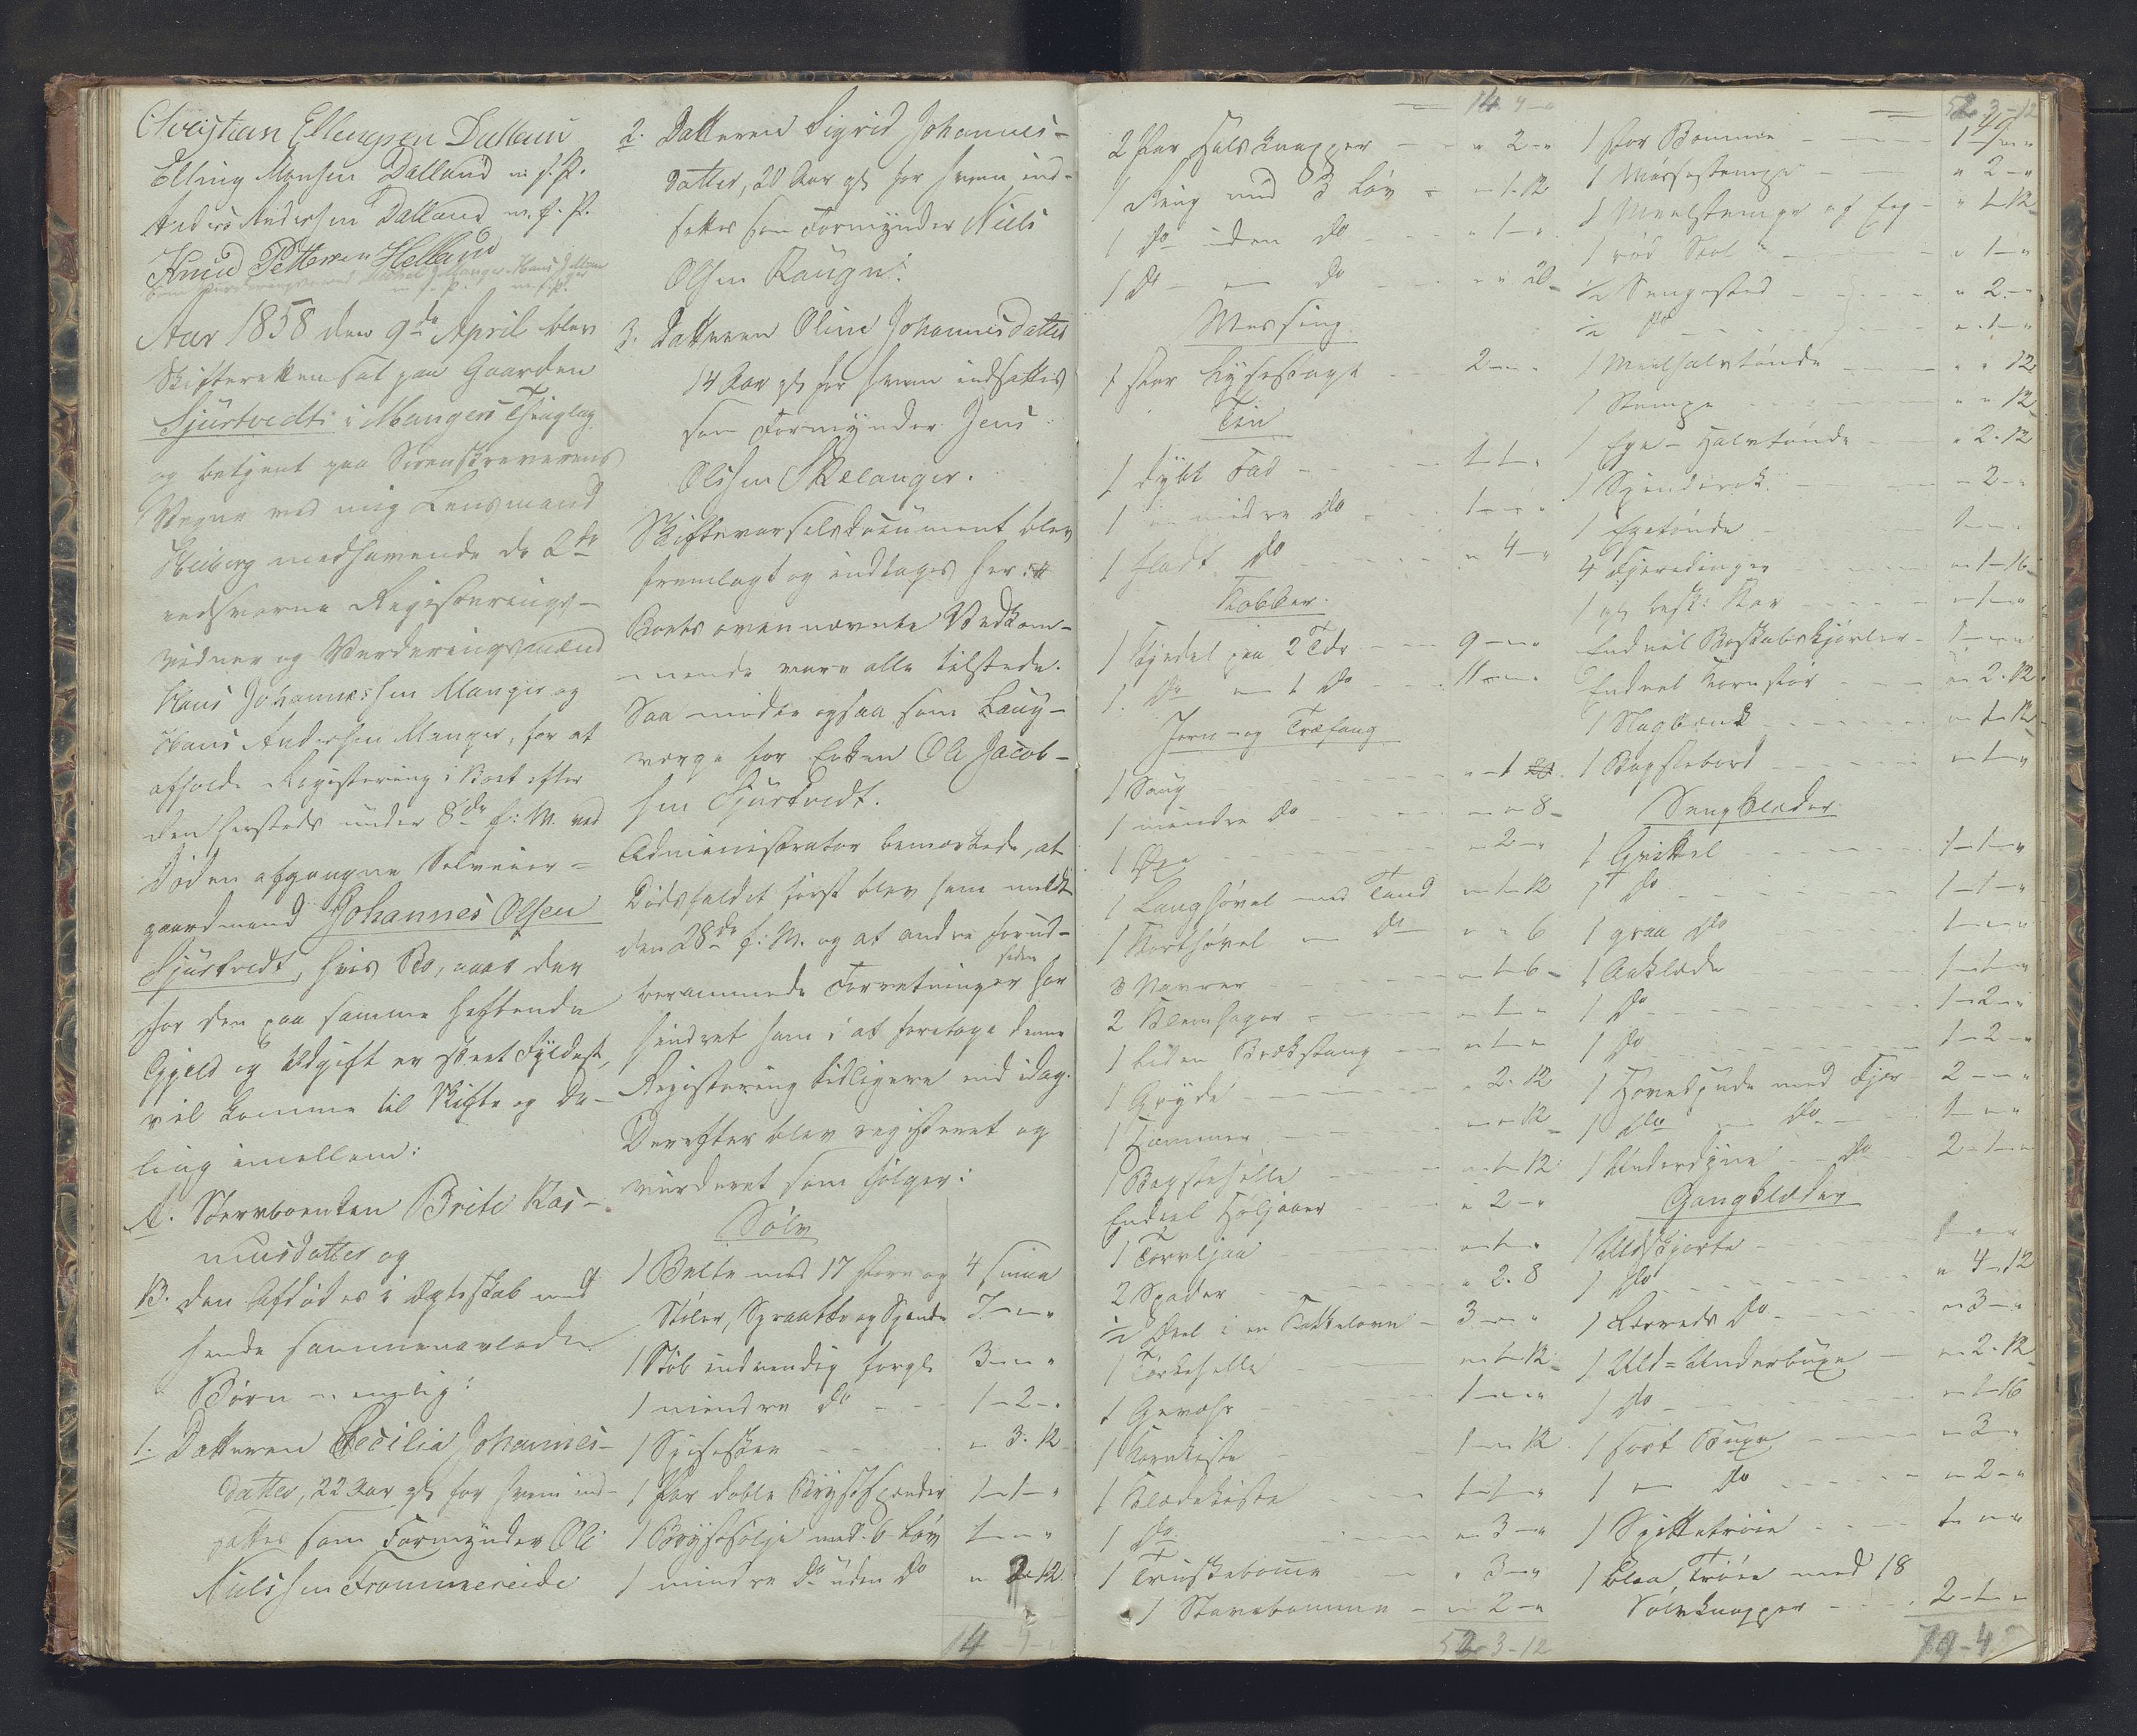 Christian Ellingsen Dalland
Elling Monsen Dalland m. f. P.
Anders Andersen Dalland m. f. P.
Knud Pettersen Helland
Aar 1858 den 9de April blev
Skifteretten sat paa Gaarden
Sjurtvedt i Mangers Thinglag
og betjent paa Sorenskriverens
Vegne ved mig Lensmand
Heiberg medhavende de 2de
edsvorne Registrerings-
vidner og Vurderingsmænd
Hans Johannessen Manger og
Hans Andersen Manger, for at
afholde Registrering i Boet efter
den hersteds under 8de f: M. ved
Døden afgangne Selveier-
gaardmand Johannes Olsen
Sjurtvedt, hvis Bo, naar der
for den paa samme heftende
Gjeld og Udgift er skeet Fyldest,
vil komme til Skifte og De-
ling imellem:
A. Sterboenken Brite Ras-
musdatter og
B. den Afdødes i Ægteskab med
hende sammenavlede
Børn nemlig:
1. Datteren Cecilia Johannes-
datter, 22 Aar gl for hvem ind-
sattes som Formynder Ole
Nilssen Frommereide
2. Datteren Sigrid Johannes-
datter, 20 Aar gl for hvem ind-
sattes som Formynder Niels
Olsen
3. Datteren Oline Johannesdatter
14 Aar gl for hvem indsattes
som Formynder Jens
Olssen
Skiftevarselsdocument blev
fremlagt og indtages her:
Boets ovennævnte Vedkom-
mende vare alle tilstede.
Saa mødte ogsaa som Laug-
værge for Enken Ole Jacob-
sen Sjurtvedt.
Administrator bemærkede, at
Dødsfaldet først blev ham meldt
den 28de f: M. og at andre forud-
berammede Forretninger siden har
hindret ham i at foretage denne
Registrering tidligere end idag.
Derefter blev registreret og
vurderet som følger:
Sølv
1 Belte med 17 store og 4 smaa
Stoler, Spraatter og Spende 7 - " - "
1 Støb indvendig forgl 3 - " - "
1 mindre do 1 - 2 - "
1 Spiseskee " 3. 12
1 Par doble Brystspender 1 - 1 - "
1 Brystsølje med 6 Løv 1 - " - "
1 mindre do uden do " 2 12
14
14. 4 - "
2 Par Halsknapper " 2 - "
1 Ring med 3 Løv " 1. 12
1 do uden do " 1 - "
1 do - do " " 20
Messing
1 stor Lysestage 2 - " - "
Tin
1 dybt Fad 1 - 1 - "
1 mindre do 1 - " - "
1 fladt do " 4 - "
Kobber.
1 Kjedel paa 2 Tdr 9 - " - "
1. do - 1 do 11 - " - "
Jern- og Træfang
1 Saug " 1
1 mindre do " " 8
1 Øxe " 2 - "
1 Langhøvel med Tand " 1 - 12
1 Korthøvel - do " " 6
3 Navrer " 1 - 6
2 Klemsager " 1 - "
1 liden Brækstang " 1 - "
1 Gryde " 2. 12
1 Hammer " " 12
1 Bagstehelle " 1 - 12
Endeel Høljaaer " 2 - "
1 Torvljaa " 1 - "
2 Spader " 2. 8
1/2 Deel i en Kakkelovn 3 - " - "
1 Tørkehelle " 1 - 12
1 Gevæhr 1 - " - "
1 Kornkiste 1 - " 12
1 Klædekiste 1 - 1 - "
1 do " 3 - "
1 Truskebomme " 3 - "
1 Stavebomme " 2 - "
52 3 - 12
52 - 3 - 12
1 stor Bomme
1 Mæssestampe " 2 - "
1 Meelstampe og " 1 - 12
1 rød Stol " 1 - "
1/2 Sengested " 2 - "
1/2 do " 1 - "
1 Meelhalvtønde " " 12
1 Stampe " " 12
1 Ege-Halvtønde " 2. 12
1 Spinderok " 2 - "
1 Egetønde 1 - " - "
4 Fjerdinger " 1 - 16
1 gl besk: Kar " 1 - "
Endeel Boskabskjørler 1 - " - "
Endeel Kornfør " 2. 12
1 Slagbænk " 1 - 12
1 Bagstebord " 1 - "
Sengklæder
1 Hvitel 1 - 1 - "
1 do 1 - 1 - "
1 graa do 1 - " - "
1 Aaklæde 1 - 1 - "
1 do 1 - 2 - "
1 do 1 - 2 - "
1 Hovedpude med Fjær 2 - " - "
1 do - do 1 - " - "
1 Underdyne - do 2 - 1 - "
Gangklæder
1 Uldskjorte 1 - " - "
1 do " 4 - 12
1 Lærreds do " 3 - "
1 Uld-Underbuxe " 2. 12
1 do " 1 - 16
1 sort Buxe " 3 - "
1 - do " 2 - "
1 Spittetrøie 1 - " - "
1 blaa Trøie med 18
Sølvknapper 2 - 1 - "
79 - 4